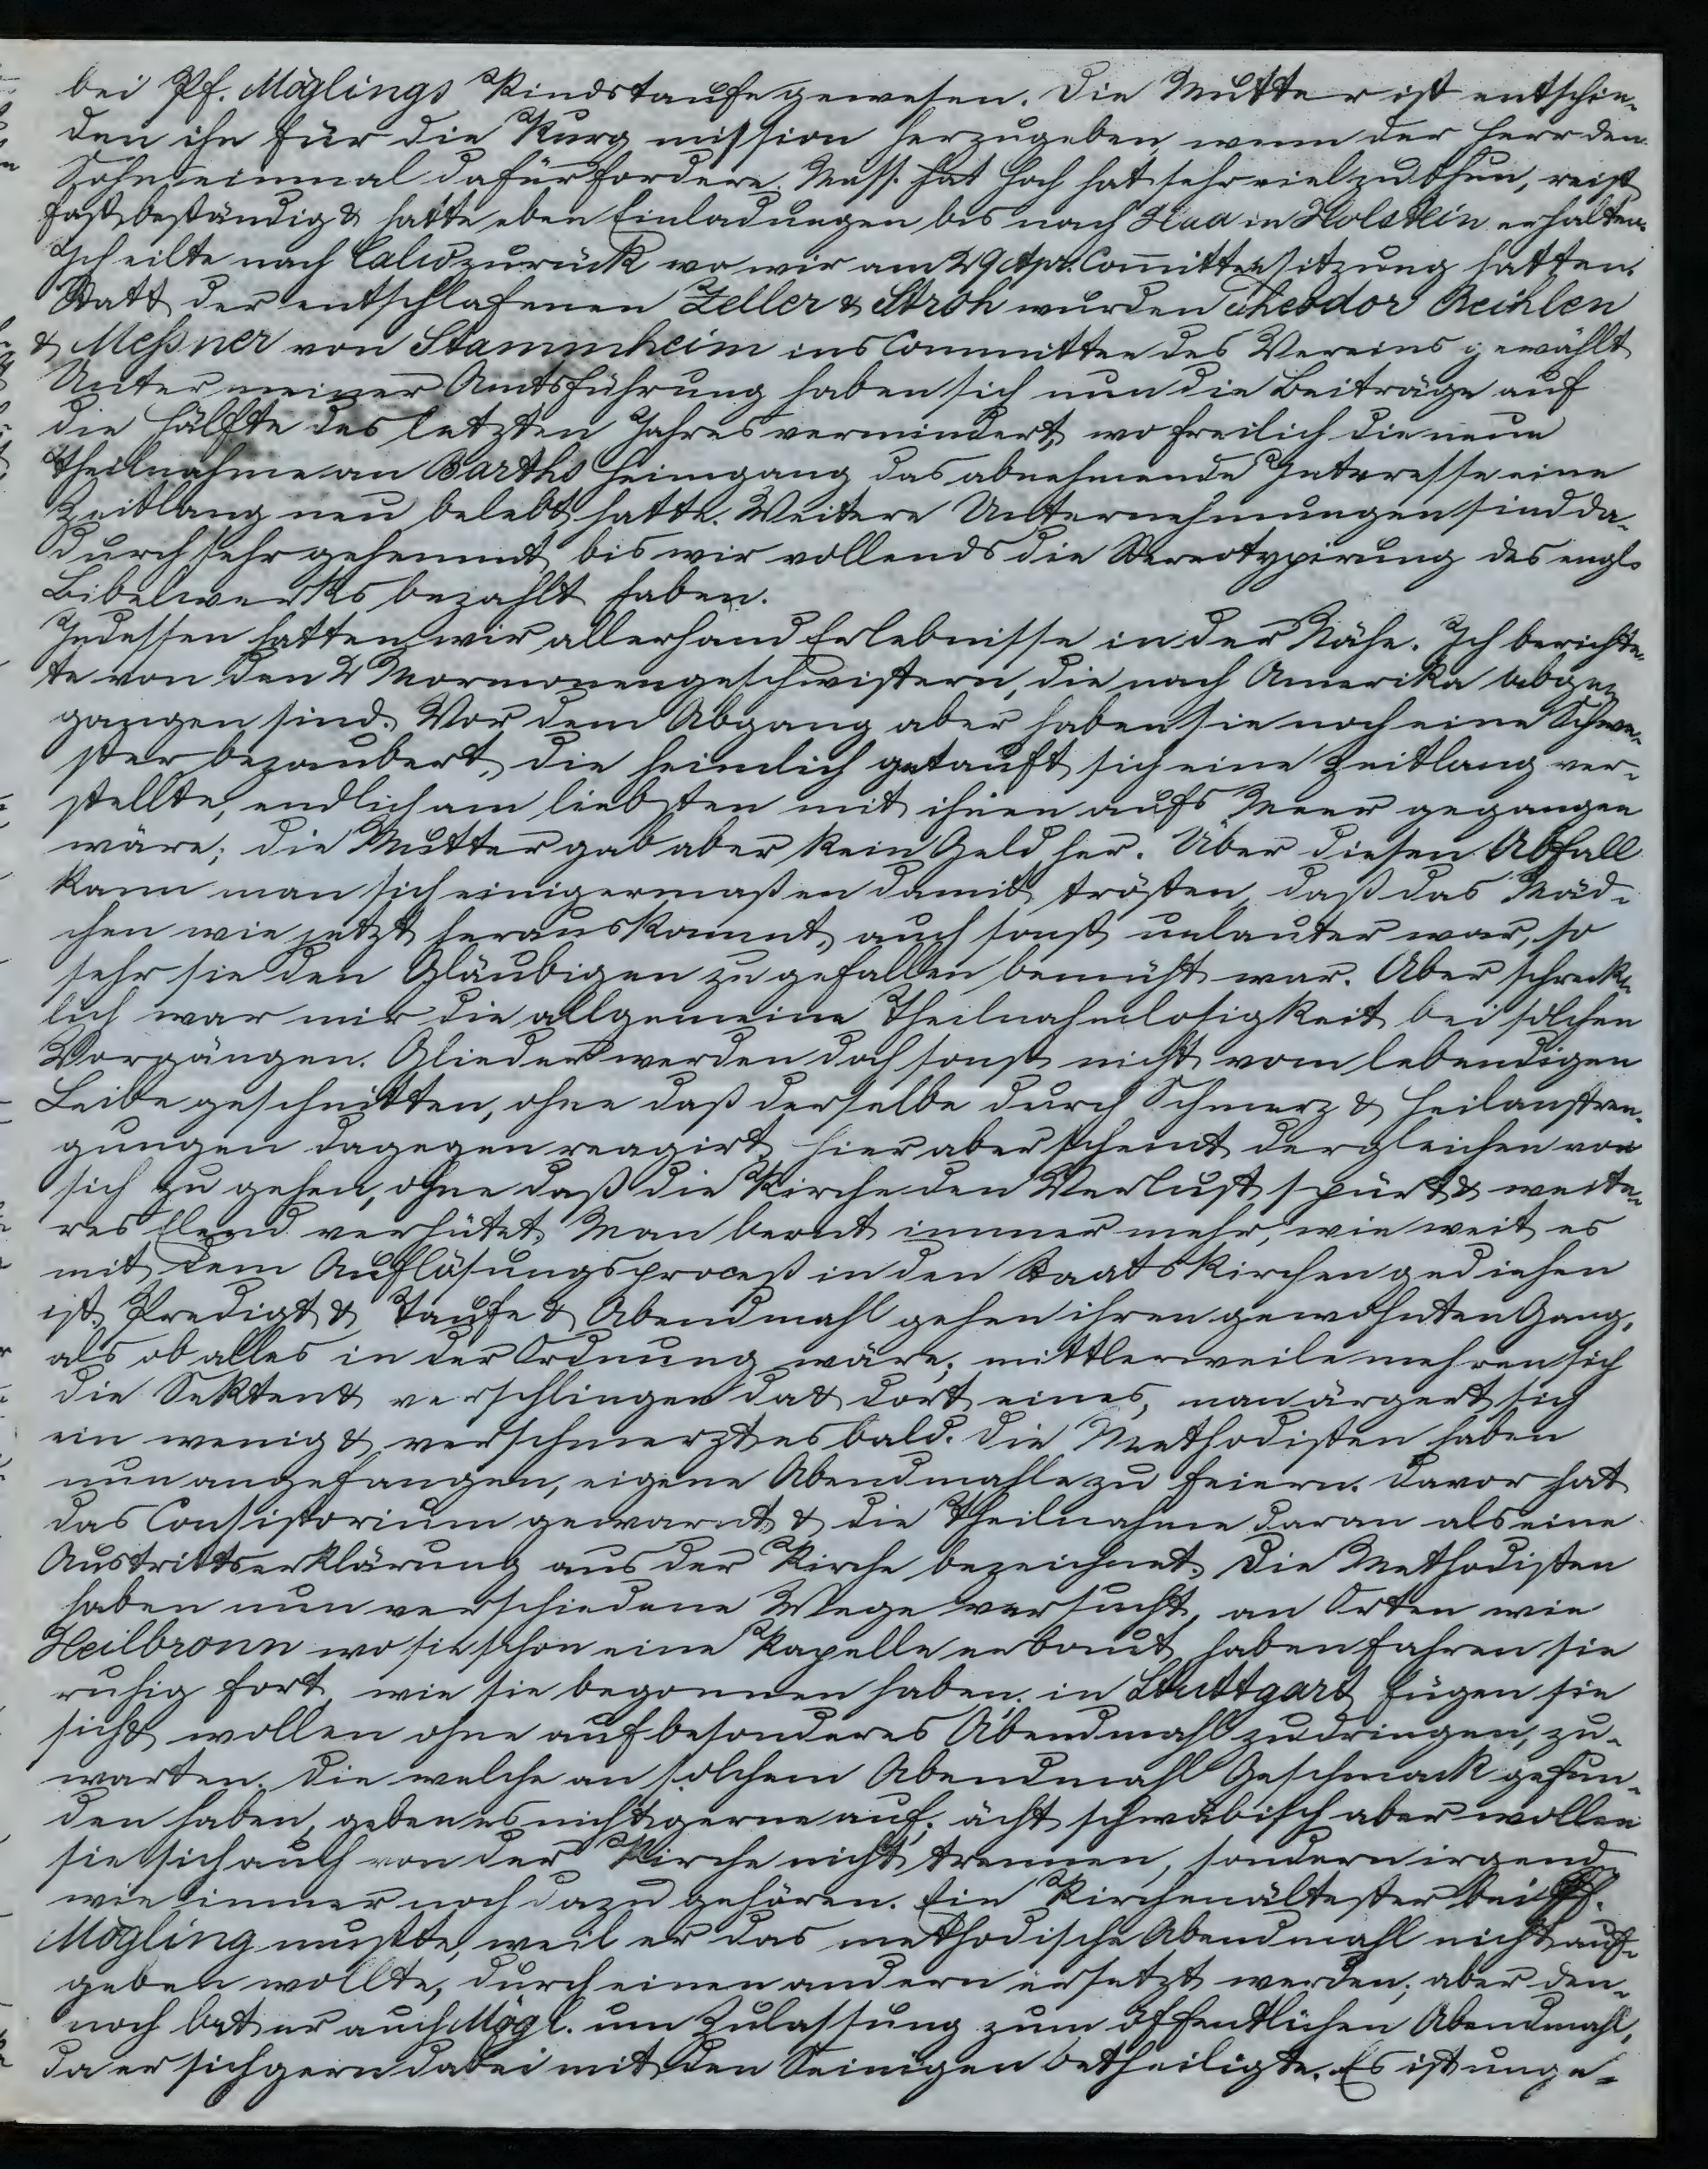 bei Pf. Möglings Kindstaufe gewesen. Die Mutter ist entschie-
den ihn für die Kurg mission herzugeben, wenn der Herr den
Sohn einmal dafür fordere. Miss. hat Hoch hat sehr viel zu thun, reist
fast beständig & hatte eben Einladungen bis nach in Holstein erhalten.
Ich eilte nach Calw zurück wo wir am 29 Apr. Committeesitzung hatten.
Statt der entschlafenen Zeller & Stroh wurden Theodor Reihlen
& Meßner von Stammheim ins Committee des Vereins gewählt
Unter meiner Amtsführung haben sich nun die Beiträge auf
die Hälfte des letzten Jahres vermindert, wo freilich die neue
Theilnahme an Barths Heimgang das abnehmende Interesse eine
Zeitlang neu belebt hatte. Weitere Unternehmungen sind da-
durch sehr gehemmt, bis wir vollends die Stereotypirung des engl.
Bibelwerks bezahlt haben.
Indessen hatten wir allerhand Erlebnisse in der Nähe. Ich berichte-
te von den 2 Mormonengeschwistern, die nach Amerika abge-
gangen sind. Vor dem Abgang aber haben sie noch eine Schwe-
ster bezaubert, die heimlich getauft sich eine Zeitlang ver-
stellte, endlich am liebsten mit ihnen aufs Meer gegangen
wäre; die Mutter gab aber kein Geld her. Über diesen Abfall
kann man sich einigermaßen damit trösten, daß das Mäd-
chen wie jetzt herauskommt, auch sonst unlauter war, so
sehr sie den Gläubigen zu gefallen bemüht war. Aber schreck-
lich war mir die allgemeine Theilnahmlosigkeit bei solchen
Vorgängen. Glieder werden doch sonst nicht vom lebendigen
Leibe geschnitten, ohne daß derselbe durch Schmerz & Heilanstren-
gungen dagegen reagirt, hier aber scheint dergleichen vor
sich zu gehen, ohne daß die Kirche den Verlust spürt & weite-
res Elend verhütet. Man lernt immer mehr, wie weit es
mit dem Auflösungsproceß in den Staatskirchen gediehen
ist. Predigt & Taufe & Abendmahl gehen ihren gewohnten Gang,
als ob alles in der Ordnung wäre; mittlerweile mehren sich
die Sekten & verschlingen da & dort eines, man ärgert sich
ein wenig & verschmerzt es bald. Die Methodisten haben
nun angefangen, eigene Abendmahle zu feiern. Davor hat
das Consistorium gewarnt & die Theilnahme daran als eine
Austrittserklärung aus der Kirche bezeichnet. Die Methodisten
haben nun verschiedene Wege versucht, an Orten wie
Heilbronn wo sie schon eine Kapelle erbaut haben fahren sie
ruhig fort, wie sie begonnen haben. in Stuttgart fügen sie
sich & wollen ohne auf besonderes Abendmahl zu dringen, zu-
warten. Die welche an solchem Abendmahl Geschmack gefun-
den haben, geben es nicht gerne auf. ächt schwäbisch aber wollen
sie sich auch von der Kirche nicht trennen, sondern irgend
wie immer noch dazu gehören. Ein Kirchenältester bei Pf.
Mögling mußte, weil er das methodische Abendmahl nicht auf-
geben wollte, durch einen andern ersetzt werden; aber den-
noch bat er auch Mögl. um Zulassung zum öffentlichen Abendmahl,
da er sich gern dabei mit den Seinigen betheiligte. Es ist unge-